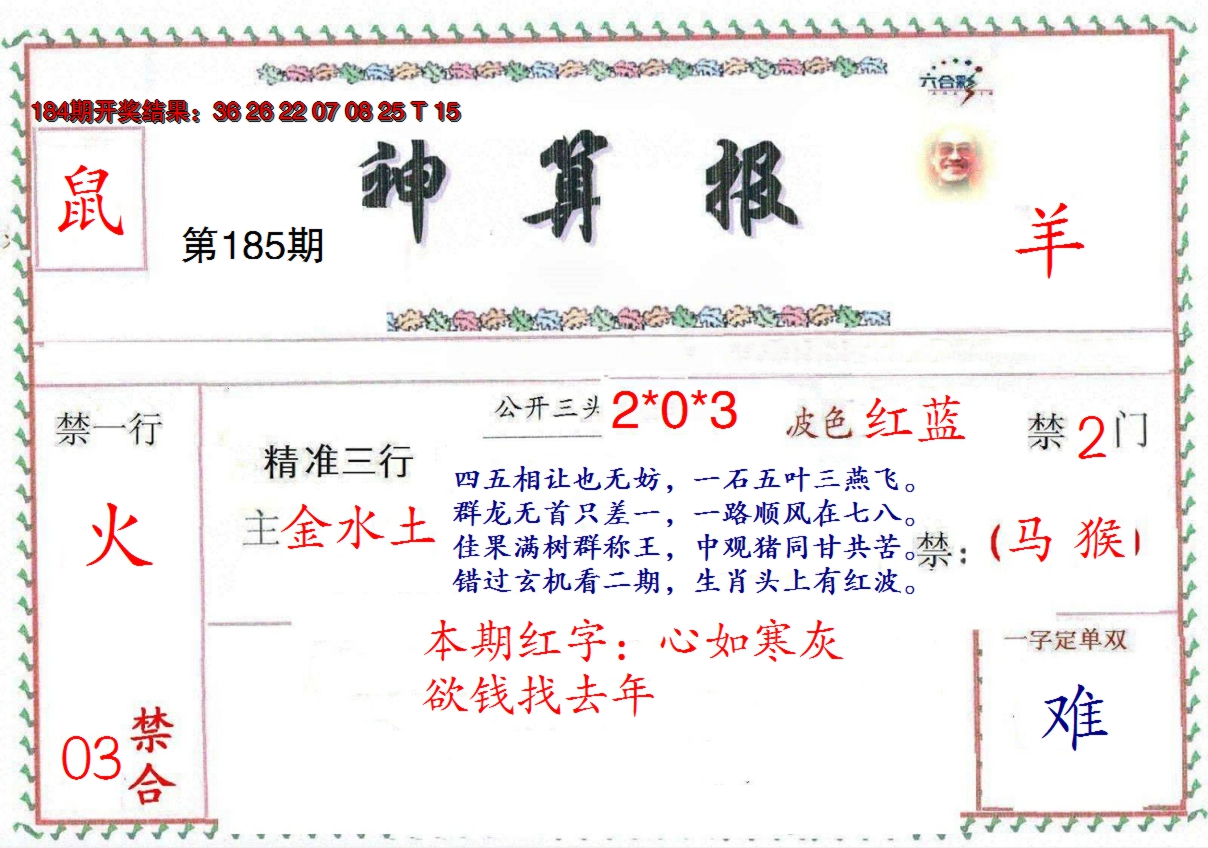 六合彩
184期开奖结果：36 26 22 07 08 25 T 15
鼠
神算报
第185期
羊
禁一行
火
03
禁合
精准三行
主金水土
公开三头 2*0*3
波色 红蓝
禁2门
四五相让也无妨，一石五叶三燕飞。
群龙无首只差一，一路顺风在七八。
佳果满树群称王，中观猪同甘共苦。
错过玄机看二期，生肖头上有红波。
禁：（马 猴）
本期红字：心如寒灰
欲钱找去年
一字定单双
难